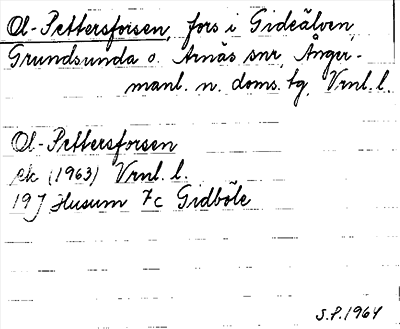 Ol-Pettersforsen, fors i Gideälven,
Grundsunda o. Arnäs snr, Ånger-
manl. n. doms. tg, Vrnl. l.
Ol-Pettersforsen
ek (1963) Vrnl. l.
19J Husum 7c Gidböle
S.P. 1964